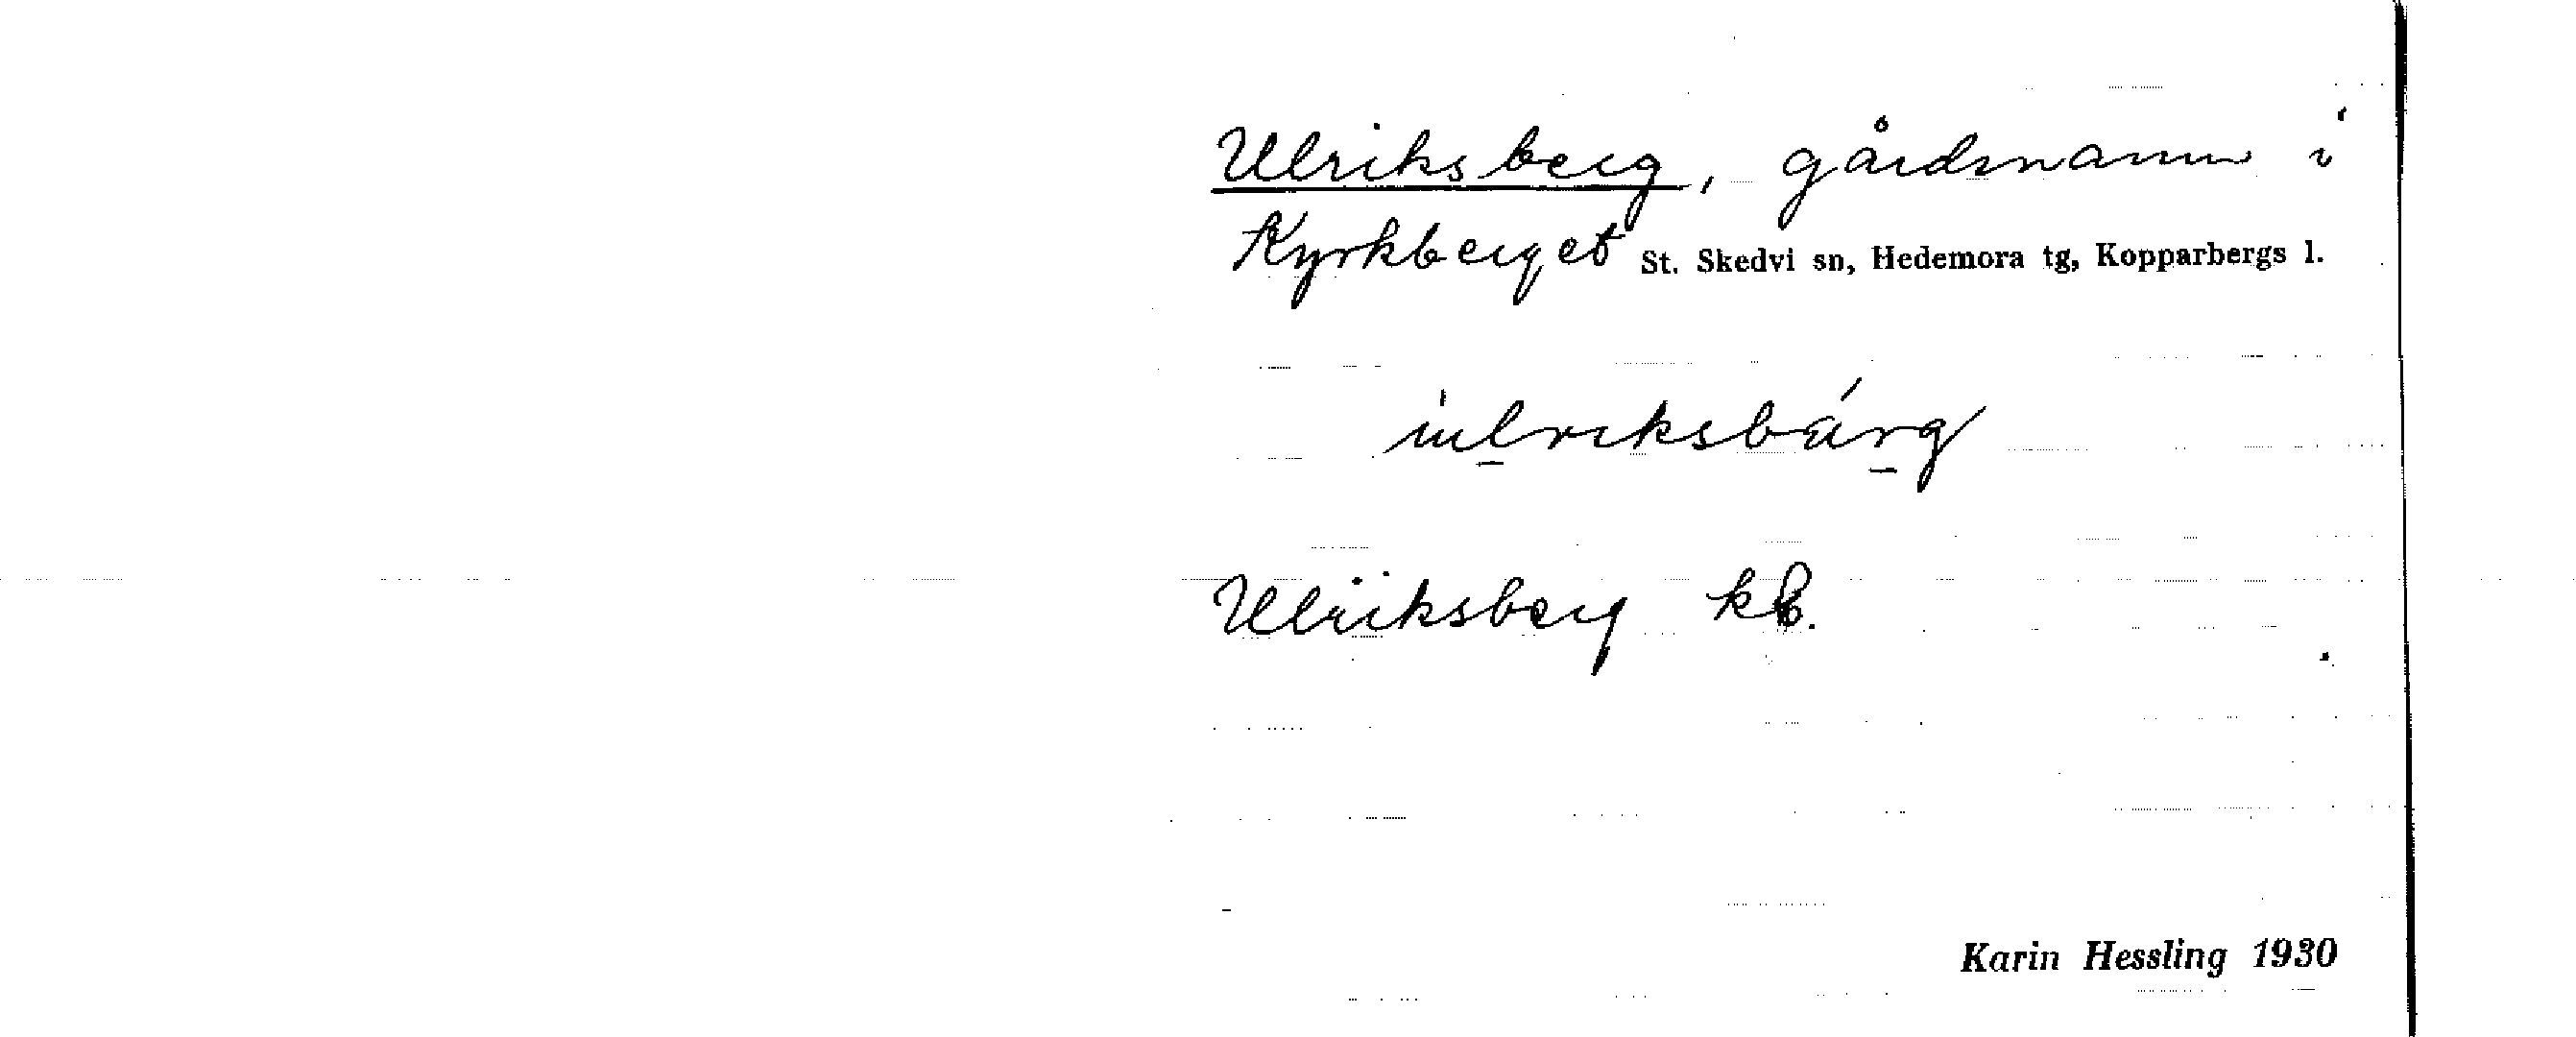 Ulriksberg, gårdsnamn i
Kyrkberget St. Skedvi sn, Hedemora tg, Kopparbergs l.
ùlriksbárg
Ulriksberg kb.
Karin Hessling 1930